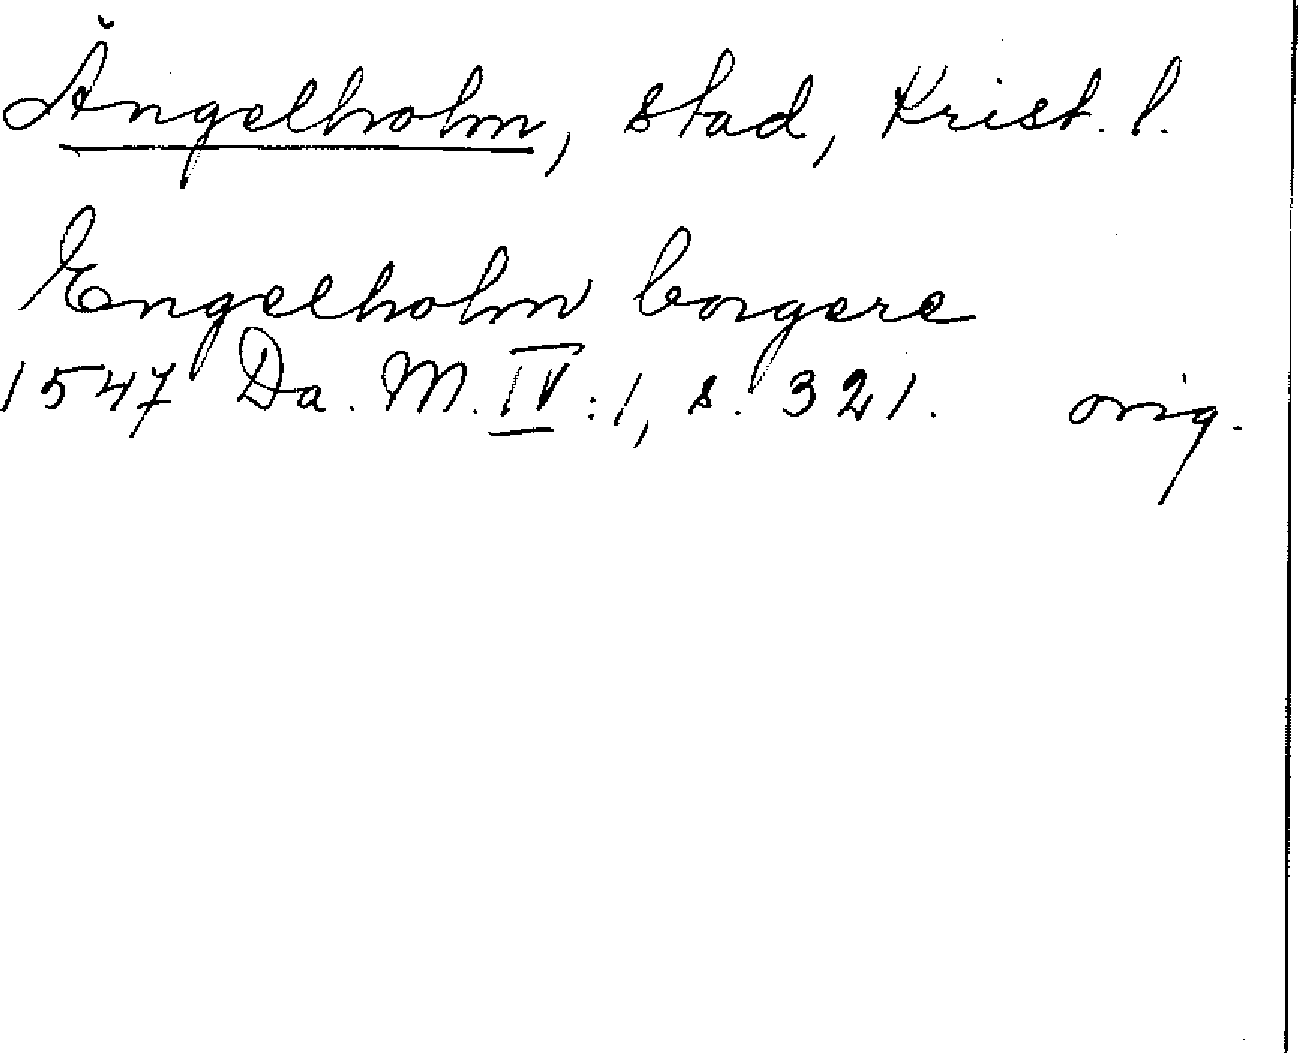 Ängelholm, stad, Krist. l.
Engelholm borgere
1547 Da. M. IV:1, s. 321. orig.